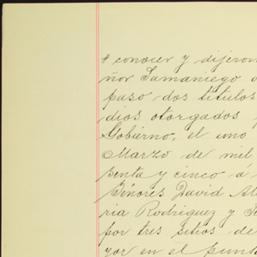 á conocer y dijeron
ñor Samaniego
paso dos titulos
dios otorgados
Gobierno, el uno
Marzo de mil
penta y cinco á
Señores David
ria Rodriguez y
por tres sitios de
yor en el punt